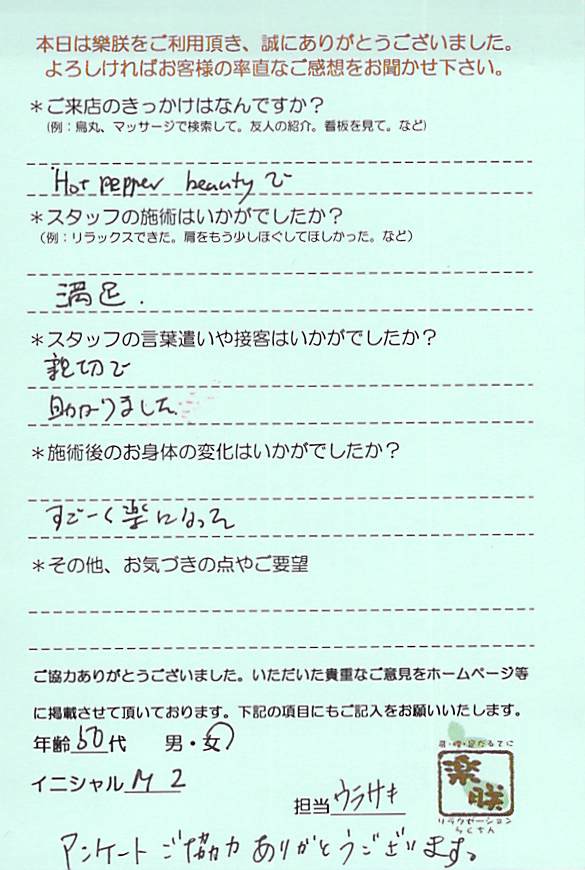 本日は樂朕をご利用頂き、誠にありがとうございました。
よろしければお客様の率直なご感想をお聞かせ下さい。
＊ご来店のきっかけはなんですか？
(例：烏丸、マッサージで検索して。友人の紹介。看板を見て。など)
Hot pepper beautyで
＊スタッフの施術はいかがでしたか？
(例：リラックスできた。肩をもう少しほぐしてほしかった。など)
満足.
＊スタッフの言葉遣いや接客はいかがでしたか？
親切で
助かりました
＊施術後のお身体の変化はいかがでしたか？
すごーく楽になった
＊その他、お気づきの点やご要望
ご協力ありがとうございました。いただいた貴重なご意見をホームページ等
に掲載させて頂いております。下記の項目にもご記入をお願いいたします。
年齢50代 男・女
イニシャル M
担当 ウラサキ
樂朕
リラクゼーション
らくちん
アンケートご協力ありがとうございます。